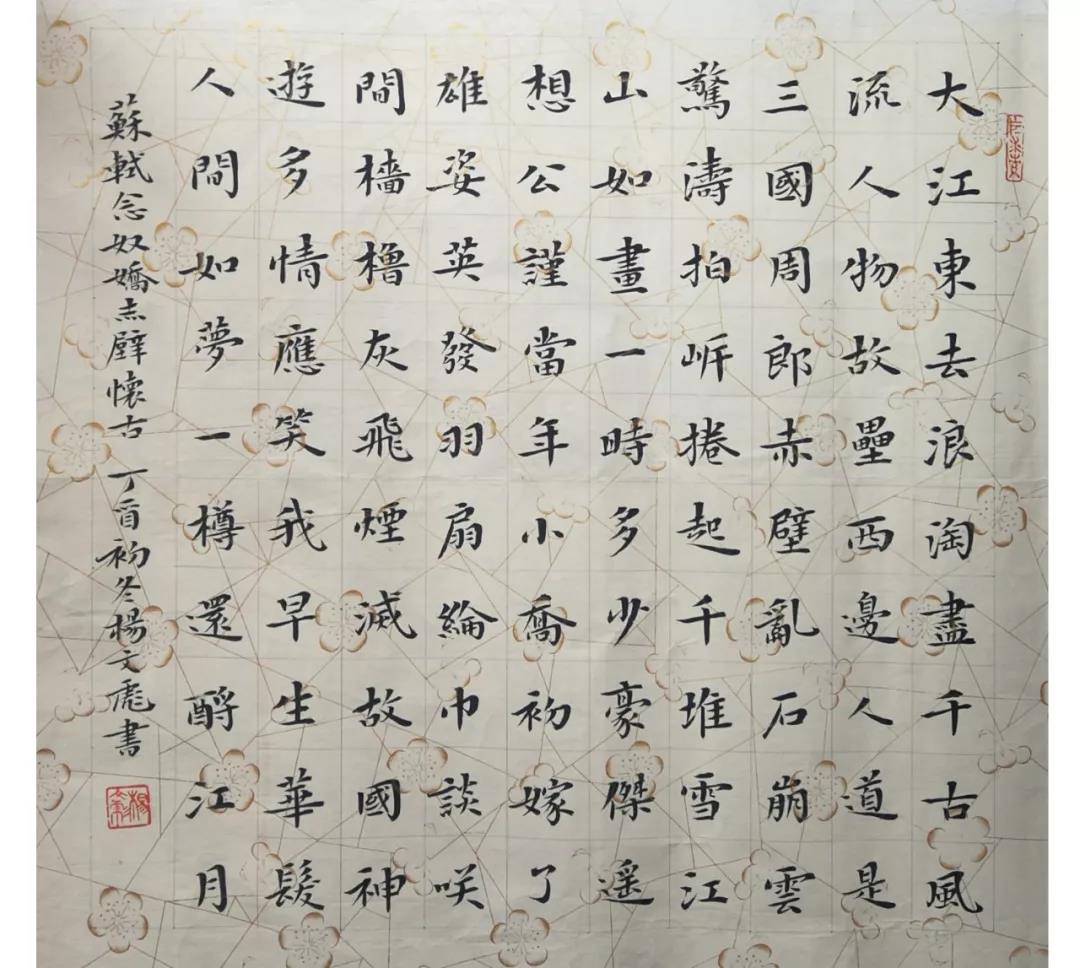 大江東去浪淘盡千古風
流人物故壘西邊人道是
三國周郎赤壁亂石崩雲
驚濤拍岍捲起千堆雪江
山如畫一時多少豪傑遥
想公謹當年小喬初嫁了
雄姿英發羽扇綸巾談咲
間檣櫓灰飛煙滅故國神
遊多情應笑我早生華髮
人間如夢一樽還酹江月
蘇軾念奴嬌赤壁懷古 丁酉初冬楊文彪書